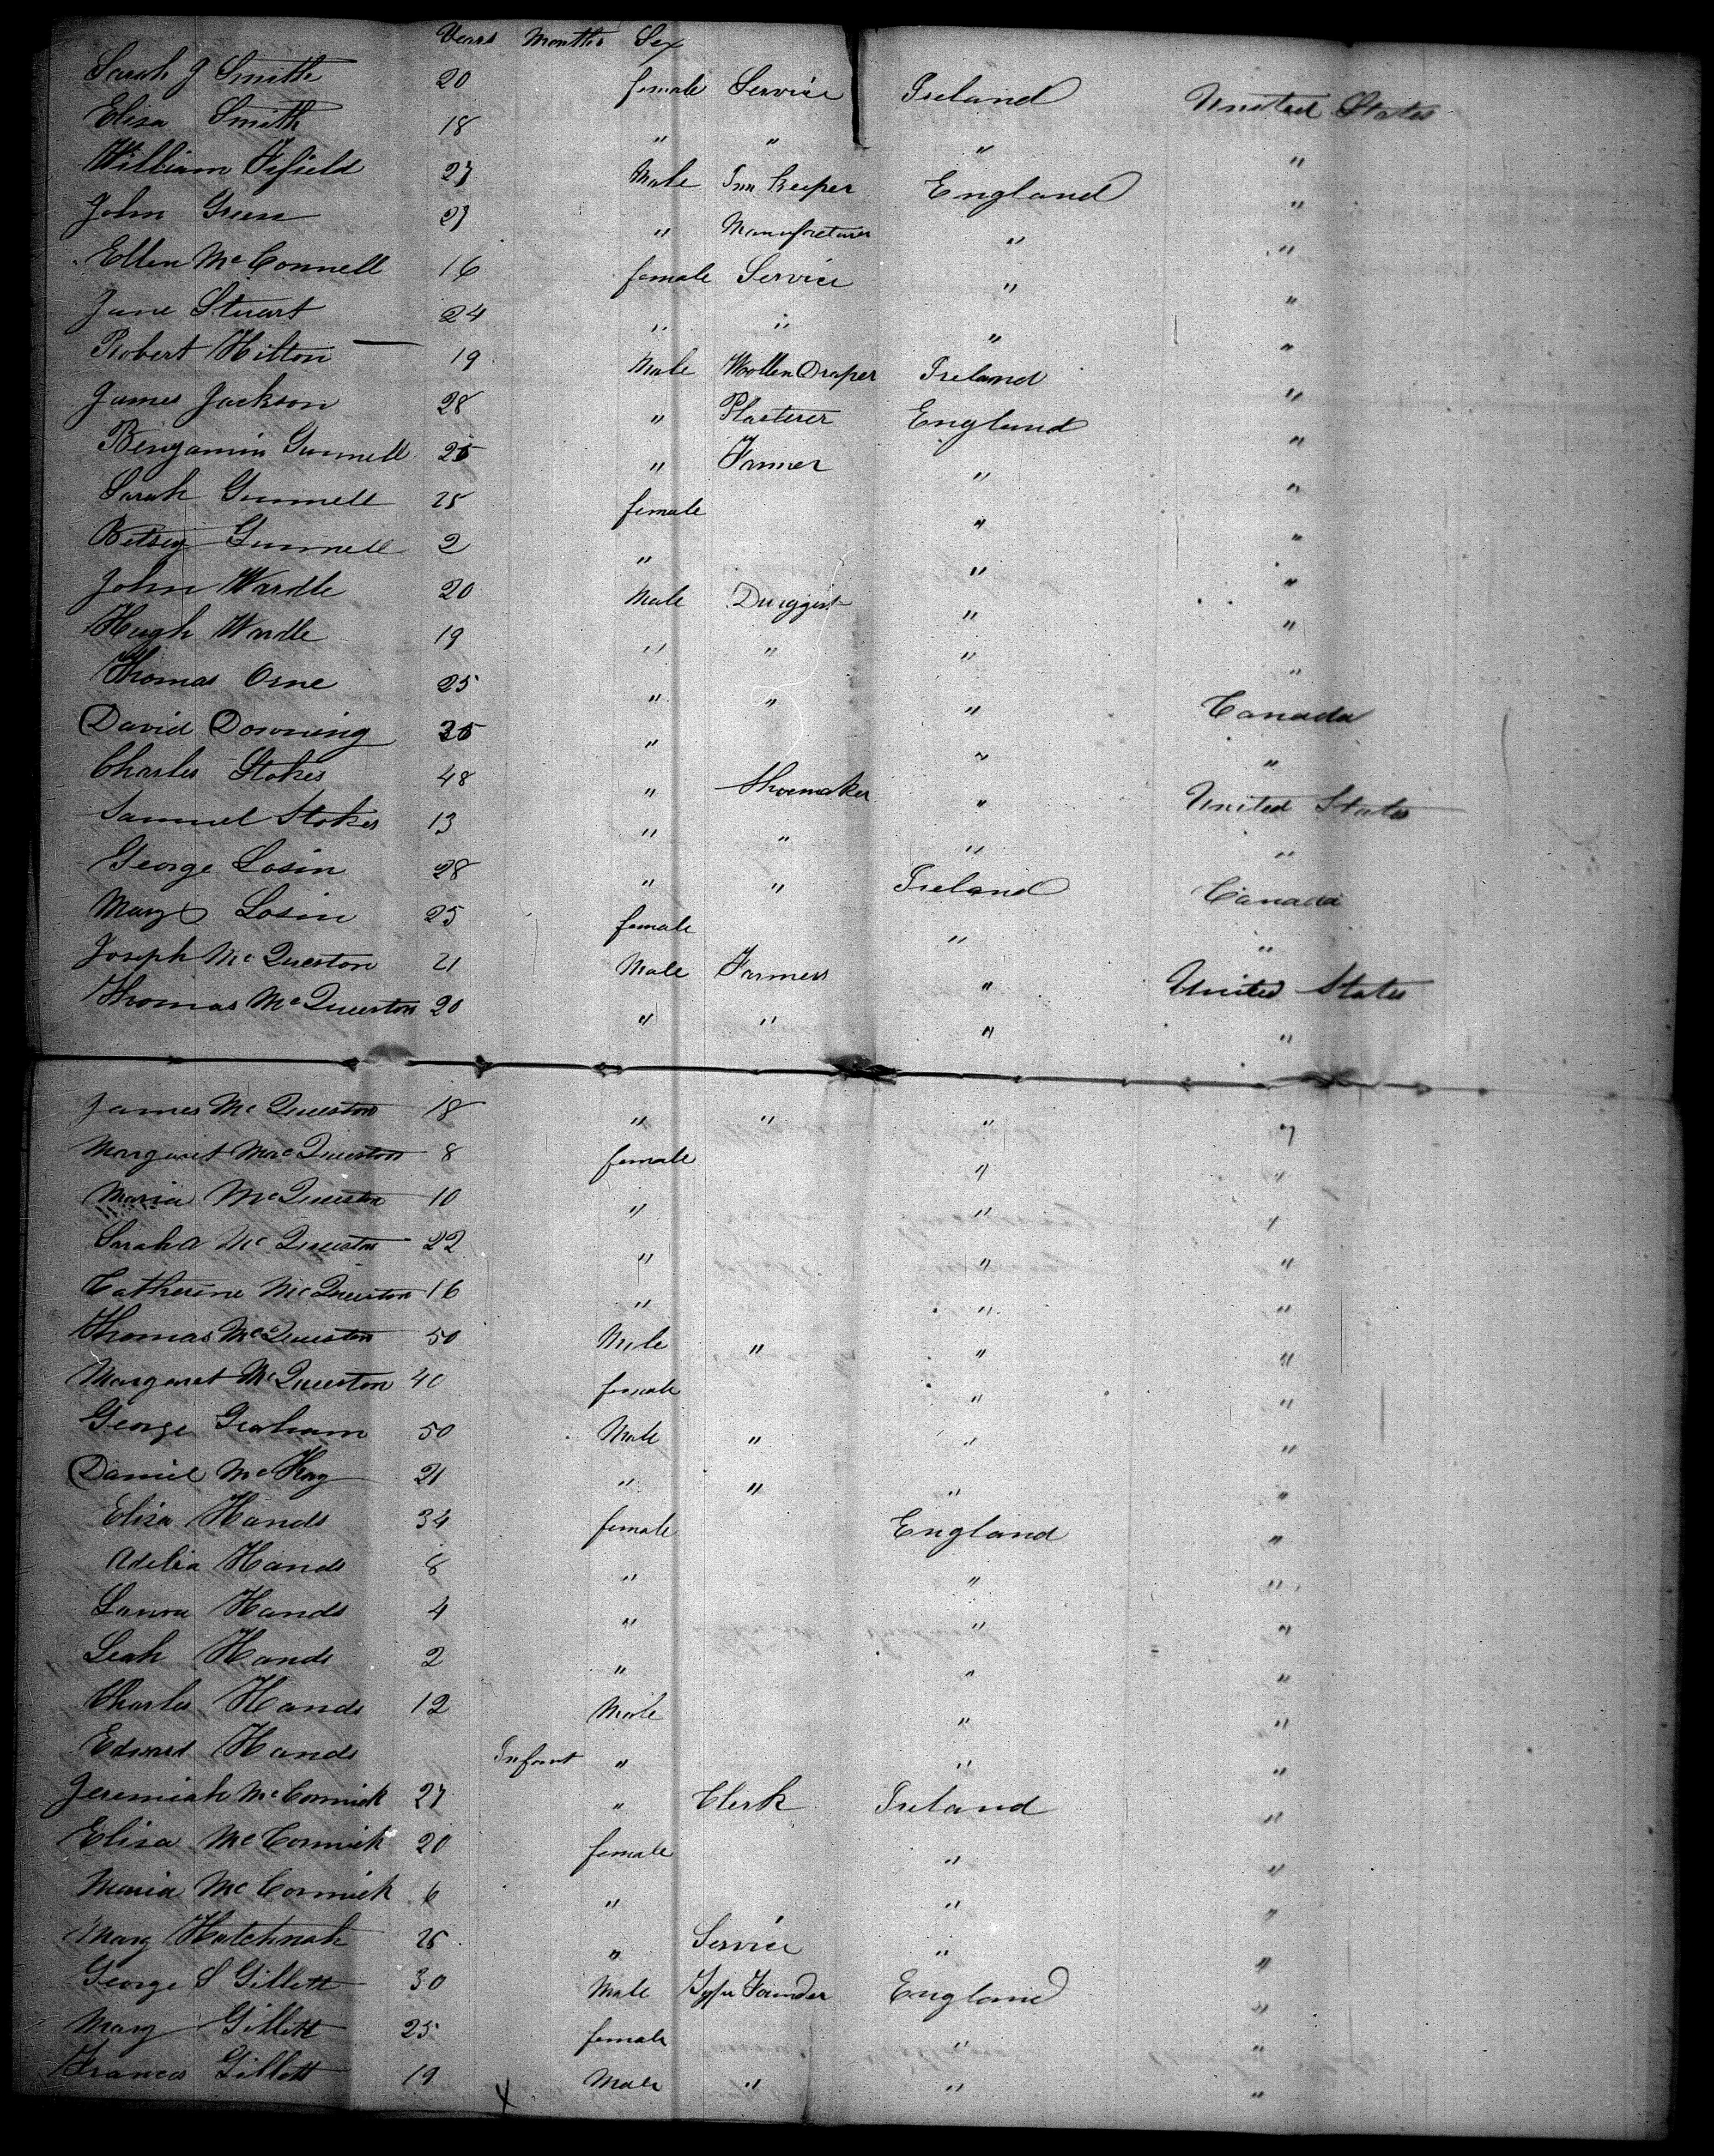 Years Months Sex
Sarah J Smith 20 female Service Ireland United States
Eliza Smith 18 " " " "
William Fifield 27 Male Inn Keeper England "
John Green 27 " Manufacturer " "
Ellen McConnell 16 female Service " "
Jane Stuart 24 " " " "
Robert Hilton 19 Male Woollen Draper Ireland "
James Jackson 28 " Plasterer England "
Benjamin Gunnell 25 " Farmer " "
Sarah Gunnell 25 female " "
Betsey Gunnell 2 " " "
John Wardle 20 Male Druggist " "
Hugh Wardle 19 " " " "
Thomas Orne 25 " " " Canada
David Downing 35 " " "
Charles Stokes 48 " Shoemaker " United States
Samuel Stokes 13 " " " "
George Losin 28 " " Ireland Canada
Mary Losin 25 female " "
Joseph McQueston 21 Male Farmers " United States
Thomas McQueston 20 " " " "
James McQueston 18 " " " "
Margaret MacQueston 8 female " "
Maria McQueston 10 " " "
Sarah A McQueston 22 " " "
Catherine McQueston 16 " " "
Thomas McQueston 50 Male " " "
Margaret McQueston 40 female " "
George Graham 50 Male " " "
Daniel McKay 21 " " " "
Eliza Hands 34 female England "
Adelia Hands 8 " " "
Laura Hands 4 " " "
Leah Hands 2 " " "
Charles Hands 12 Male " "
Edward Hands Infant " " "
Jeremiah McCormick 27 " Clerk Ireland "
Eliza McCormick 20 female " "
Maria McCormick 6 " " "
Mary 25 " Service " "
George S Gillett 30 Male Type Founder England "
Mary Gillett 25 female " "
Frances Gillett 19 Male " " "